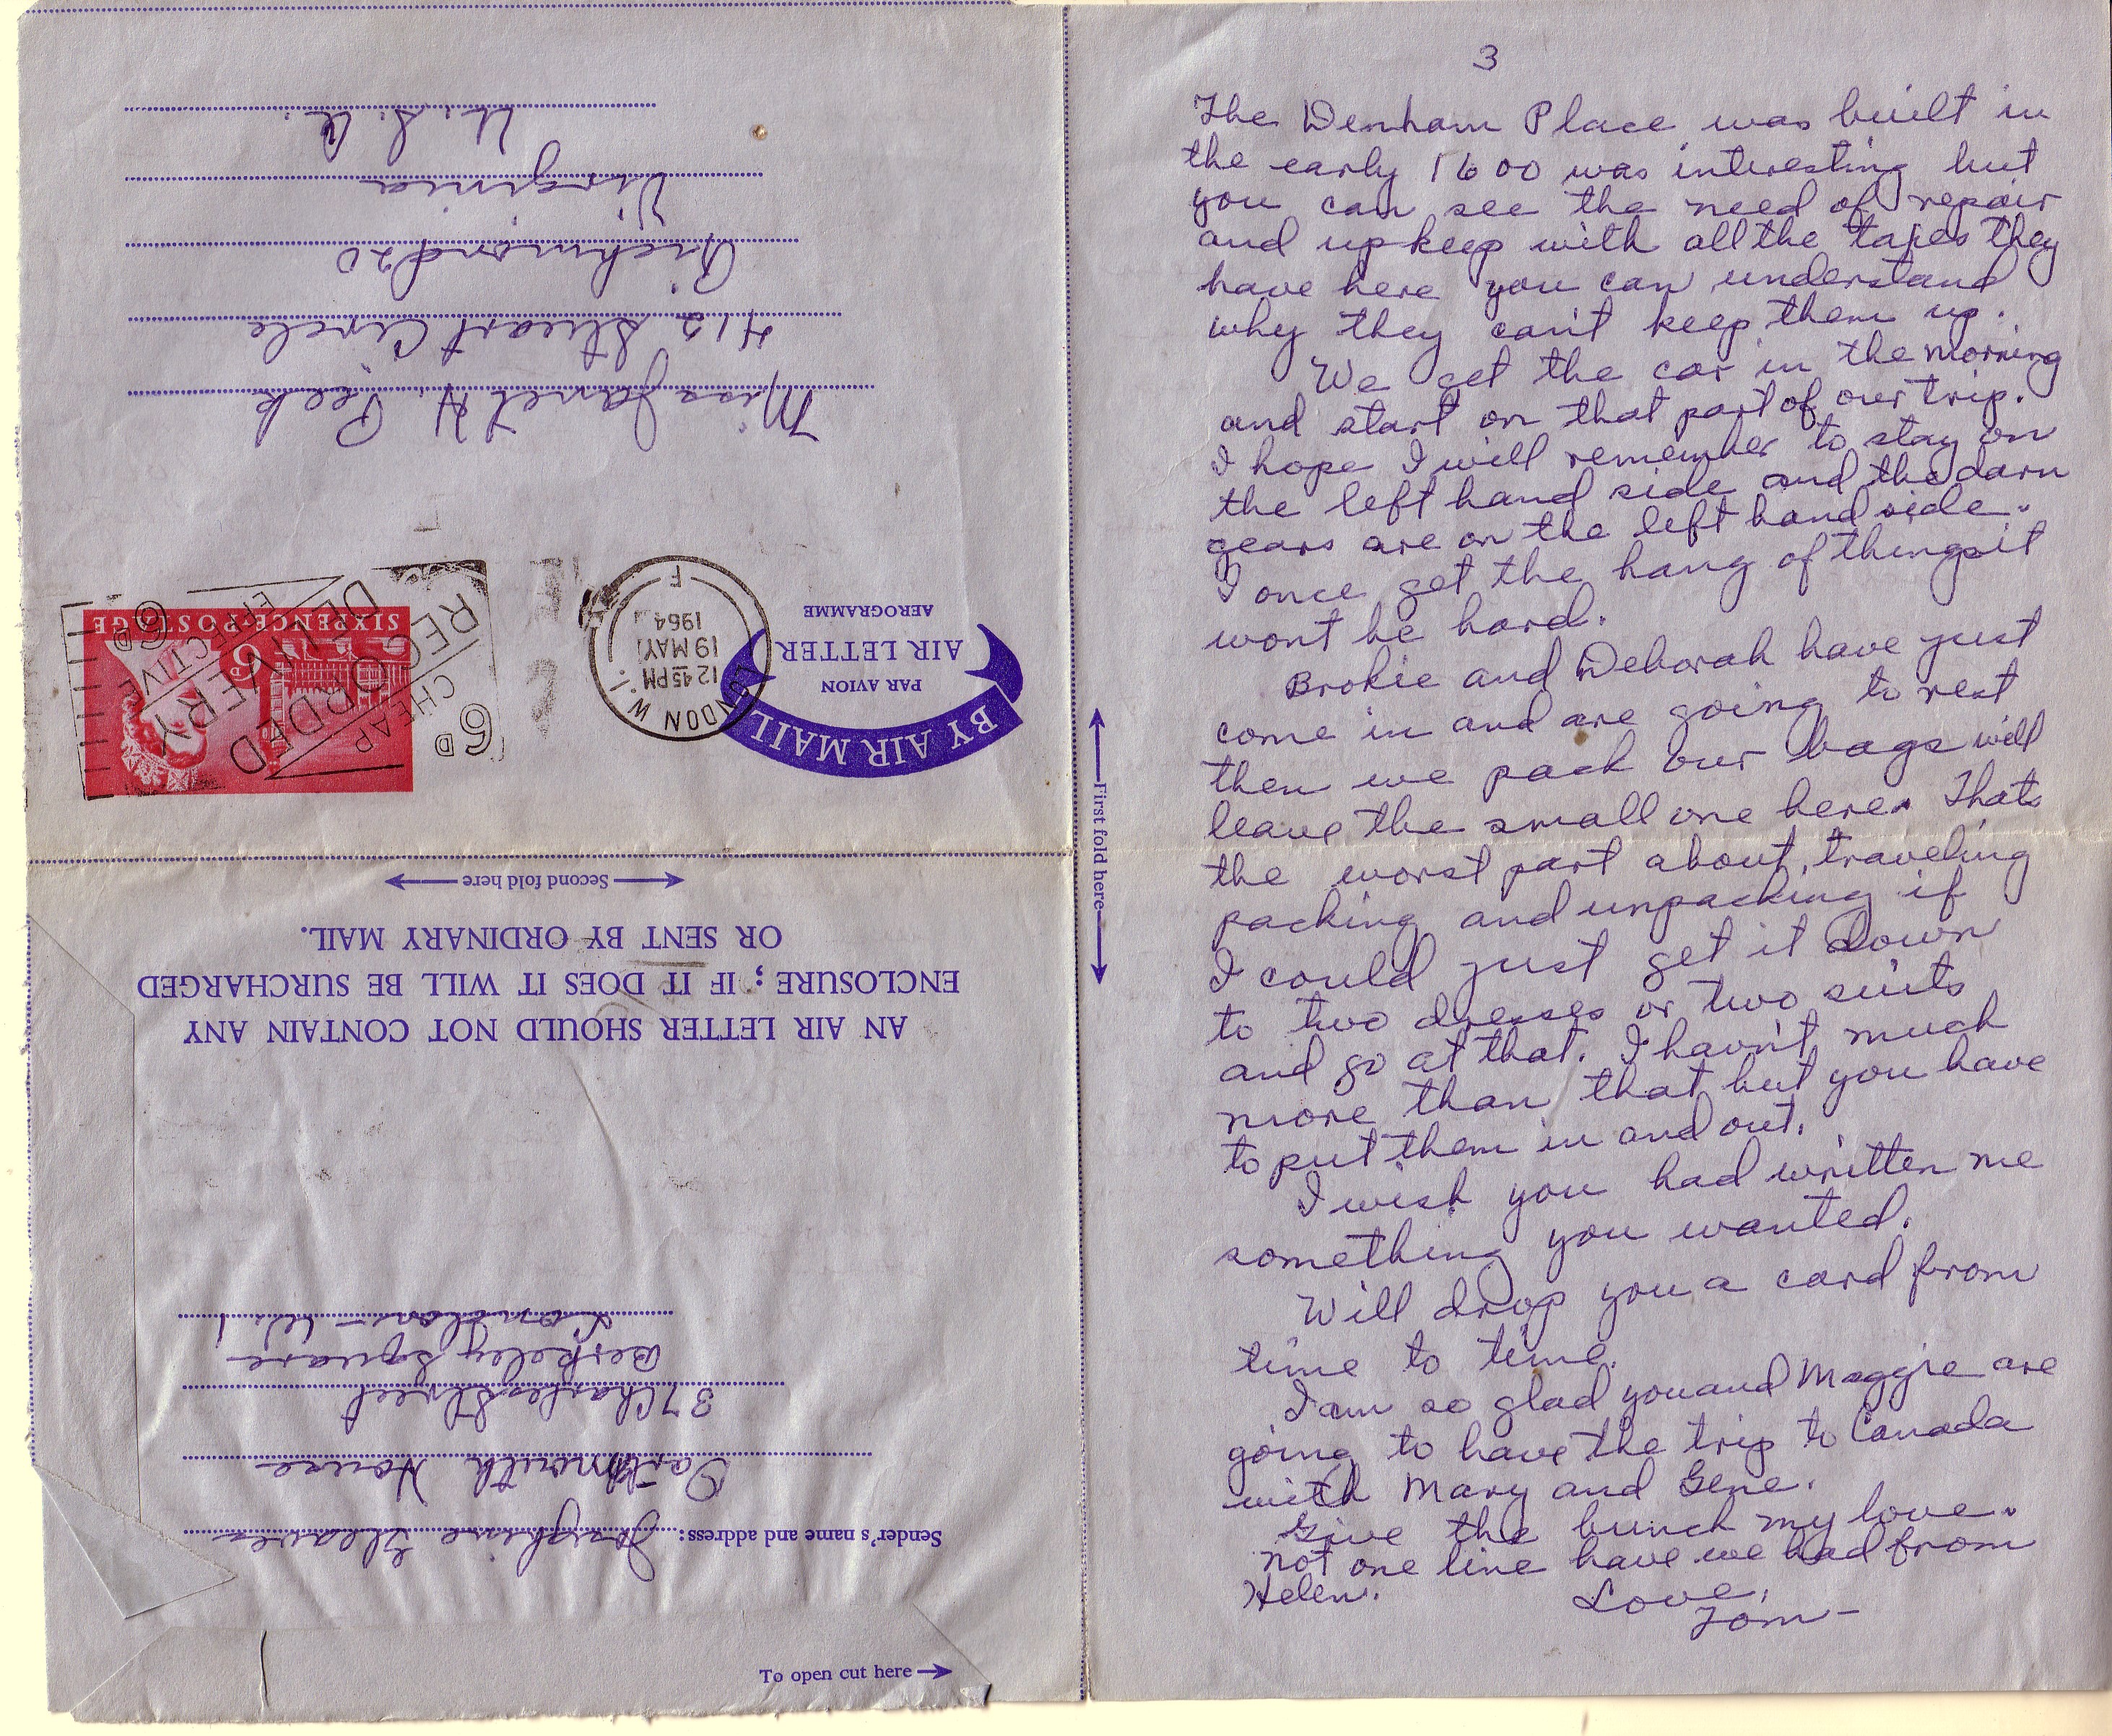 3
The Denham Place was built in
the early 1600 was interesting but
you can see the need of repair
and upkeep with all the taxes they
have here you can understand
why they can't keep them up.
We get the car in the morning
and start on that part of our trip.
I hope I will remember to stay on
the left hand side and the darn
gears are on the left hand side.
I once get the hang of things it
wont be hard.
Brokie and Deborah have just
come in and are going to rest
then we pack our bags will
leave the small one here. Thats
the worst part about traveling
packing and unpacking if
I could just get it down
to two dresses or two suits
and go at that. I havn't much
more than that but you have
to put them in and out.
I wish you had written me
something you wanted.
Will drop you a card from
time to time.
I am so glad you and Maggie are
going to have the trip to Canada
with Mary and Gene.
Give the bunch my love.
Not one line have we had from
Helen.
Love,
Tom-
First fold here
BY AIR MAIL
PAR AVION
AIR LETTER
AEROGRAMME
LONDON W.1
12 45 PM
19 MAY
1964
F
6D
CHEAP
RECORDED
DELIVERY
EFFECTIVE
6D
6D
SIXPENCE POSTAGE
Miss Janet H. Peek
412 Stuart Circle
Richmond 20
Virginia
U.S.A.
Second fold here
To open cut here
Sender's name and address: Josephine Gleaves
Dartmouth House
37 Charles Street
Berkeley Square
London - W.1
AN AIR LETTER SHOULD NOT CONTAIN ANY
ENCLOSURE; IF IT DOES IT WILL BE SURCHARGED
OR SENT BY ORDINARY MAIL.